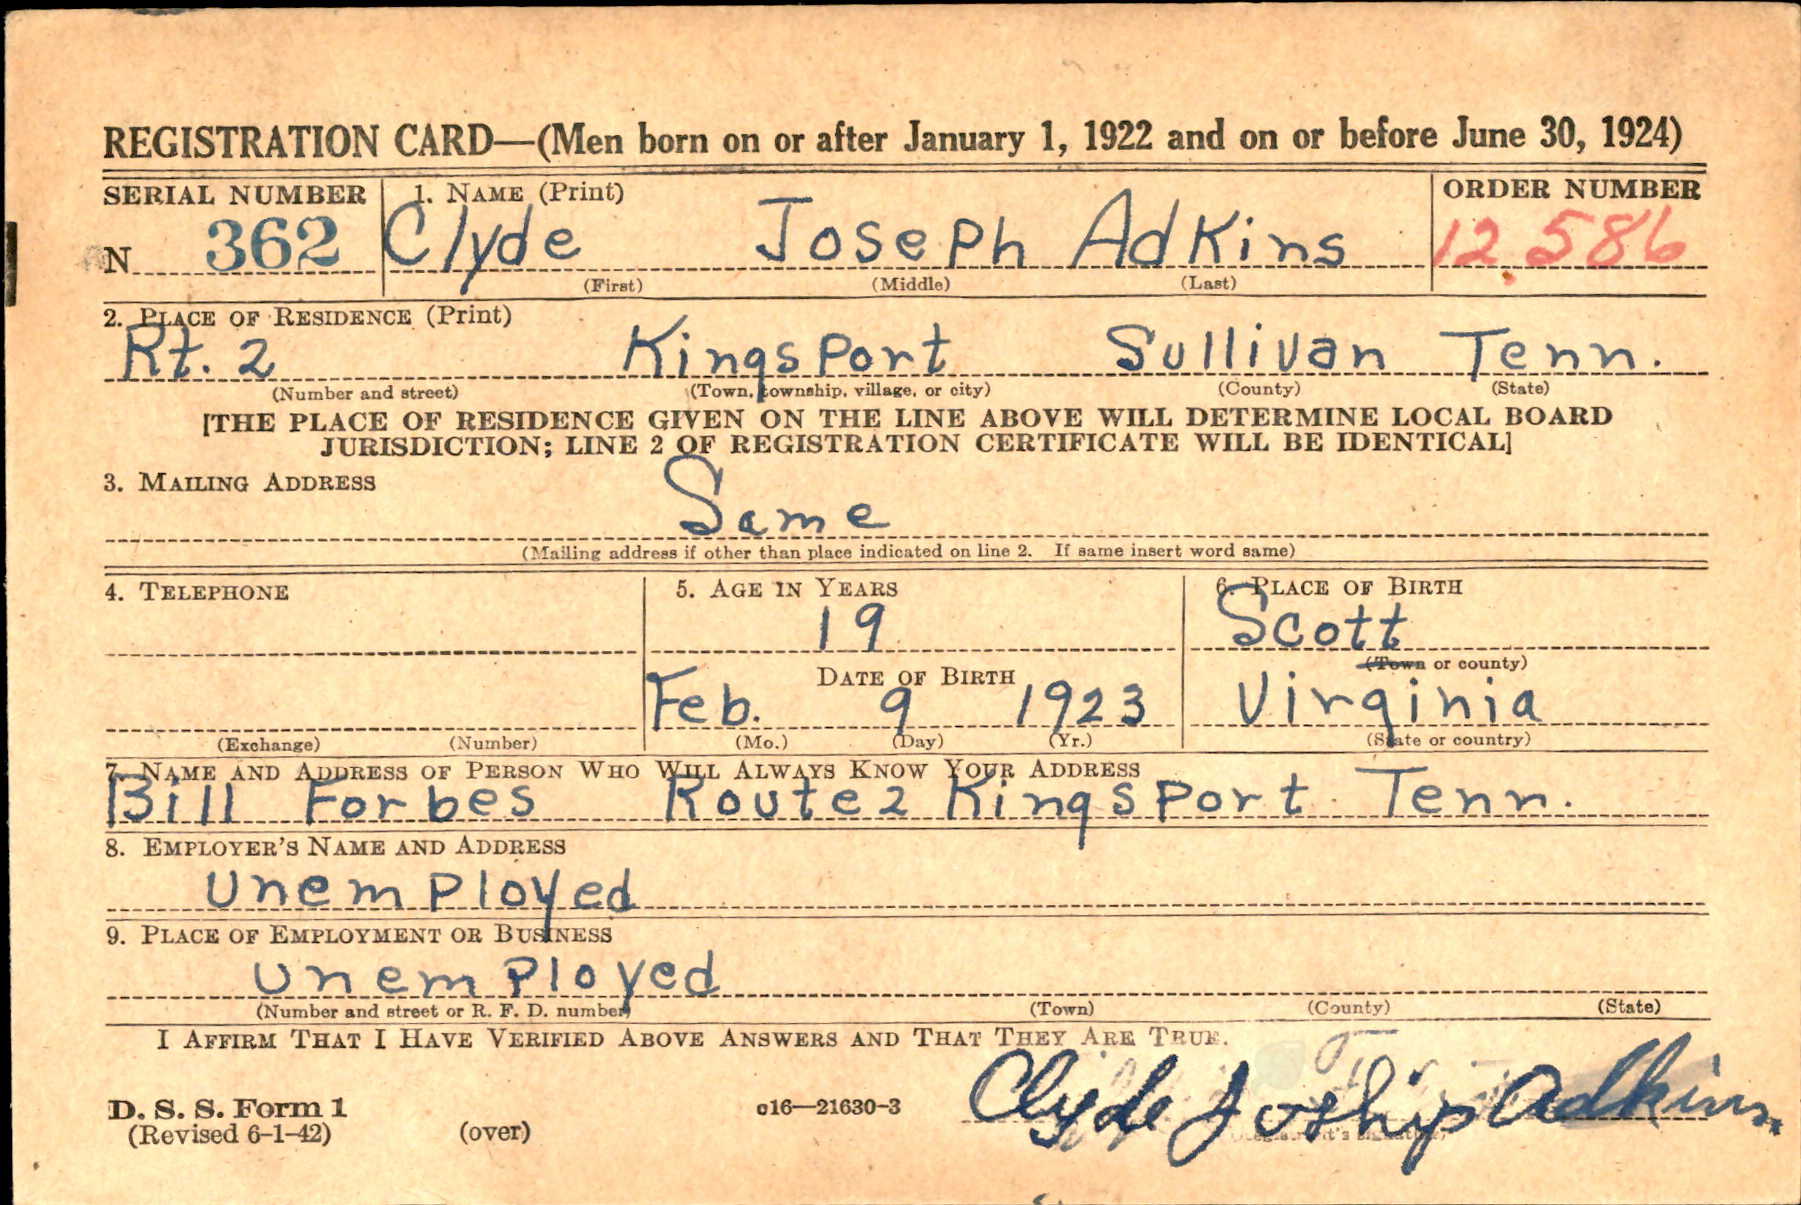 REGISTRATION CARD—(Men born on or after January 1, 1922 and on or before June 30, 1924)
SERIAL NUMBER 1. NAME (Print) ORDER NUMBER
N 362 Clyde Joseph Adkins 12,586
(First) (Middle) (Last)
2. PLACE OF RESIDENCE (Print)
Rt. 2 Kingsport Sullivan Tenn.
(Number and street) (Town, township, village, or city) (County) (State)
[THE PLACE OF RESIDENCE GIVEN ON THE LINE ABOVE WILL DETERMINE LOCAL BOARD
JURISDICTION; LINE 2 OF REGISTRATION CERTIFICATE WILL BE IDENTICAL]
3. MAILING ADDRESS
Same
(Mailing address if other than place indicated on line 2. If same insert word same)
4. TELEPHONE 5. AGE IN YEARS 6. PLACE OF BIRTH
19 Scott
(Town or county)
DATE OF BIRTH
Feb. 9 1923 Virginia
(Exchange) (Number) (Mo.) (Day) (Yr.) (State or country)
7. NAME AND ADDRESS OF PERSON WHO WILL ALWAYS KNOW YOUR ADDRESS
Bill Forbes Route 2 Kingsport Tenn.
8. EMPLOYER'S NAME AND ADDRESS
Unemployed
9. PLACE OF EMPLOYMENT OR BUSINESS
Unemployed
(Number and street or R. F. D. number) (Town) (County) (State)
I AFFIRM THAT I HAVE VERIFIED ABOVE ANSWERS AND THAT THEY ARE TRUE.
D. S. S. Form 1
(Revised 6-1-42) (over) c16—21630-3 Clyde Joship Adkins.